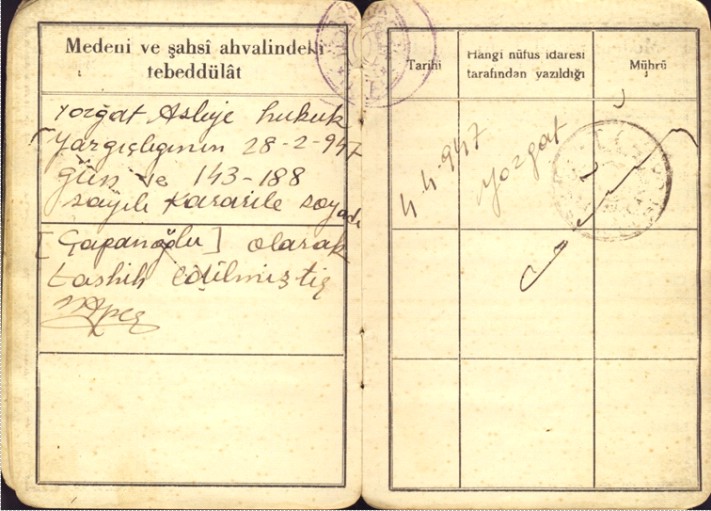 Medeni ve şahsî ahvalindeki
tebeddülât
Yozğat Asliye hukuk
yargıçlığının 28-2-947
gün ve 143-188
sayılı kararile soyadı
[Çapanoğlu] olarak
tashih edilmiştir
Tarihi
Hangi nüfus idaresi
tarafından yazıldığı
Mührü
4.4.947
Yozgat